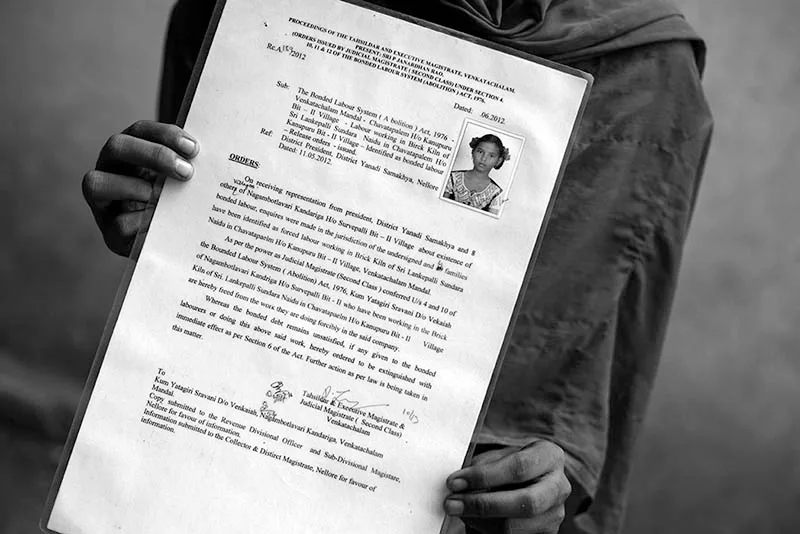 PROCEEDINGS OF THE TAHSILDAR AND EXECUTIVE MAGISTRATE, VENKATACHALAM.
PRESENT: SRI P JANARDHAN RAO.
(ORDERS ISSUED BY JUDICIAL MAGISTRATE ( SECOND CLASS) UNDER SECTION 4.
10, 11 & 12 OF THE BONDED LABOUR SYSTEM (ABOLITION ) ACT, 1976.
Rc.A/ /2012
Dated: .06.2012.
Sub: The Bonded Labour System ( A bolition ) Act, 1976 -
Venkatachalam Mandal - Chavatapalem H/o Kanupuru
Bit – II Village - Labour working in Birck Kiln of
Sri Lankepalli Sundara Naidu in Chavatapalem H/o
Kanupuru Bit - II Village – Identified as bonded labour
– Release orders - issued.
Ref: District President, District Yanadi Samakhya, Nellore
Dated: 11.05.2012.
ORDERS:
On receiving representation from president, District Yanadi Samakhya and 8
others of Nagambotlavari Kandariga H/o Survepalli Bit – II Village about existence of
bonded labour, enquires were made in the jurisdiction of the undersigned and families
have been identified as forced labour working in Brick Kiln of Sri Lankepalli Sundara
Naidu in Chavatapalem H/o Kanupuru Bit - II Village, Venkatachalam Mandal.
As per the power as Judicial Magistrate (Second Class) conferred U/s 4 and 10 of
the Bounded Labour System ( Abolition) Act, 1976, Kum Yatagiri Sravani D/o Vekaiah
of Nagambotlavari Kandriga H/o Survepalli Bit - II who have been working in the Brick
Kiln of Sri. Lankepalli Sundara Naidu in Chavatapalem H/o Kanupuru Bit - II Village
are hereby freed from the work they are doing forcibly in the said company.
Whereas the bonded debt remains unsatisfied, if any given to the bonded
labourers or doing this above said work, hereby ordered to be extinguished with
immediate effect as per Section 6 of the Act. Further action as per law is being taken in
this matter.
Tahsildar & Executive Magistrate &
Judicial Magistrate ( Second Class)
Venkatachalam
To
Kum Yatagiri Sravani D/o Venkaiah, Nagambotlavari Kandriga, Venkatachalam
Mandal.
Copy submitted to the Revenue Divisional Officer and Sub-Divisional Magistare,
Nellore for favour of information.
Information submitted to the Collector & Distirct Magistrate, Nellore for favour of
information.